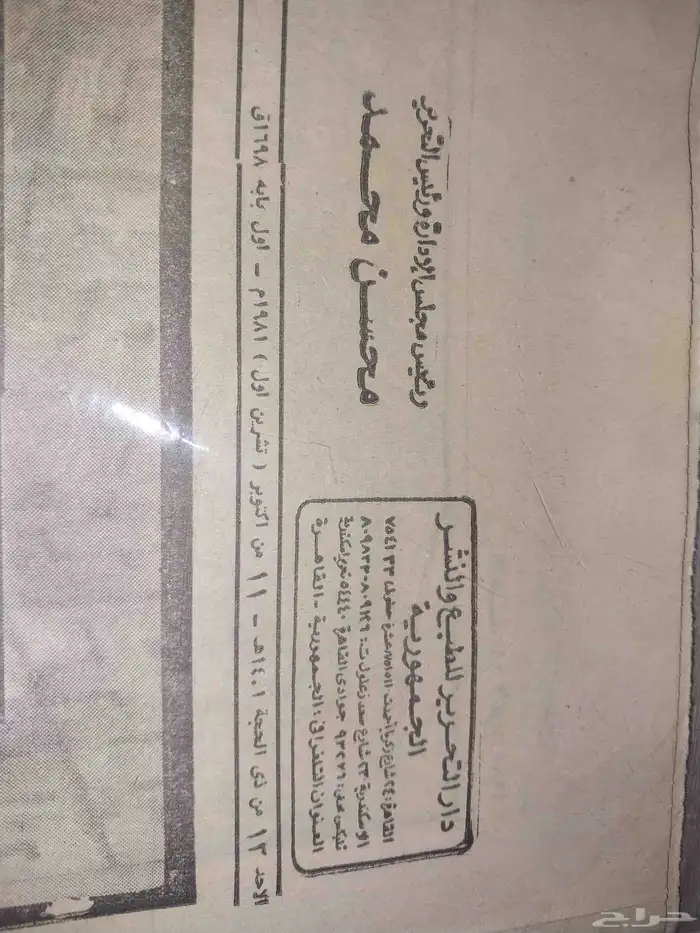 ورئيس مجلس الإدارة ورئيس التحرير
محسن محمد
دار التحرير للطبع والنشر
الجمهورية
القاهرة: ٢٤ شارع زكريا أحمد ت ٧٥١٥١١ عشرة خطوط ٧٥٤١٣٣
الاسكندرية: ٢٣ شارع سعد زغلول ت:
تليكس: ٩٣٢٧٦
العنوان التلغرافي: الجمهورية - القاهرة
الاحد ١٣ من ذى الحجة ١٤٠١هـ - ١١ من اكتوبر ( تشرين اول ) ١٩٨١م - اول بابه ١٦٩٨ق
حراج